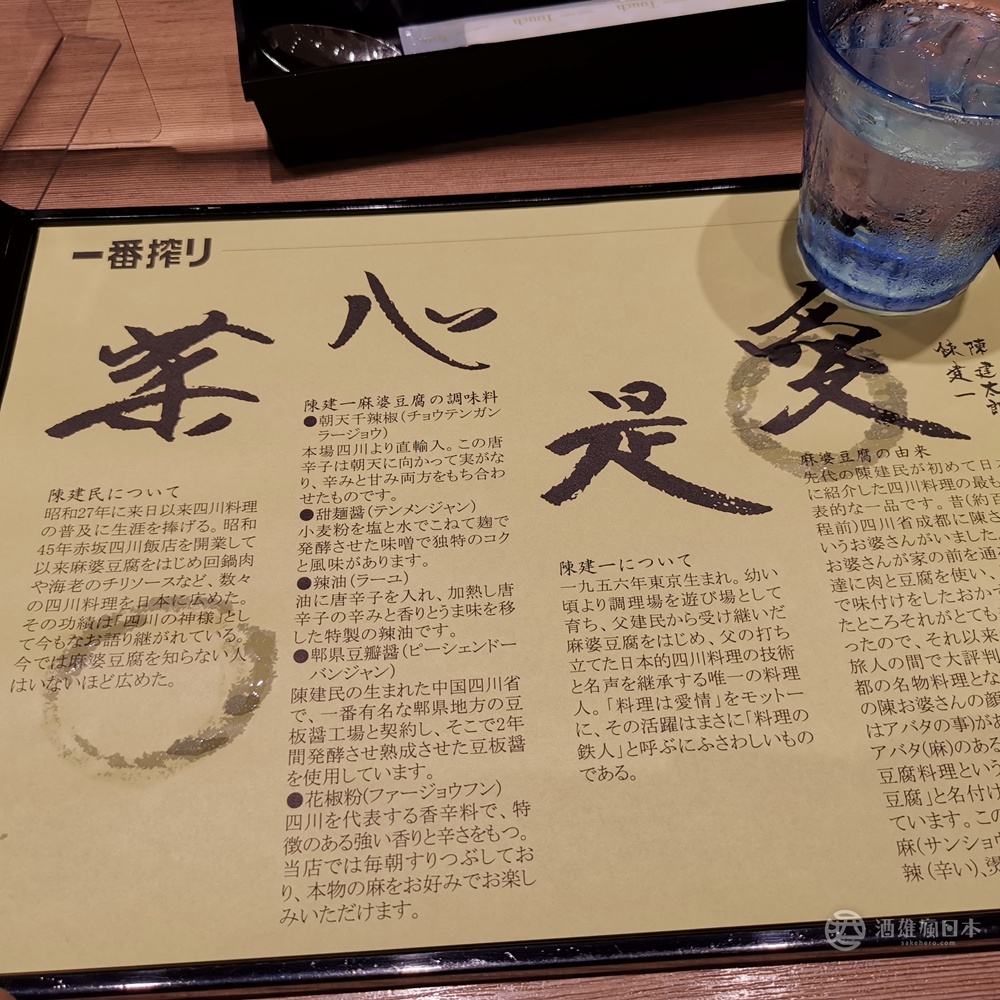 Touch
一番搾り
菜
心
是
愛
陳建太郎
陳建一
陳建民について
昭和27年に来日以来四川料理
の普及に生涯を捧げる。昭和
45年赤坂四川飯店を開業して
以来麻婆豆腐をはじめ回鍋肉
や海老のチリソースなど、数々
の四川料理を日本に広めた。
その功績は「四川の神様」とし
て今もなお語り継がれている。
今では麻婆豆腐を知らない人
はいないほど広めた。
陳建一麻婆豆腐の調味料
●朝天干辣椒(チョウテンガン
ラージョウ)
本場四川より直輸入。この唐
辛子は朝天に向かって実がな
り、辛みと甘み両方をもち合わ
せたものです。
●甜麺醤(テンメンジャン)
小麦粉を塩と水でこねて麹で
発酵させた味噌で独特のコク
と風味があります。
●辣油(ラーユ)
油に唐辛子を入れ、加熱し唐
辛子の辛みと香りとうま味を移
した特製の辣油です。
●郫県豆瓣醤(ピーシェンドー
バンジャン)
陳建民の生まれた中国四川省
で、一番有名な郫県地方の豆
板醤工場と契約し、そこで2年
間発酵させ熟成させた豆板醤
を使用しています。
●花椒粉(ファージョウフン)
四川を代表する香辛料で、特
徴のある強い香りと辛さをもつ。
当店では毎朝すりつぶしてお
り、本物の麻をお好みでお楽し
みいただけます。
陳建一について
一九五六年東京生まれ。幼い
頃より調理場を遊び場として
育ち、父建民から受け継いだ
麻婆豆腐をはじめ、父の打ち
立てた日本的四川料理の技術
と名声を継承する唯一の料理
人。「料理は愛情」をモットー
に、その活躍はまさに「料理の
鉄人」と呼ぶにふさわしいもの
である。
麻婆豆腐の由来
先代の陳建民が初めて日本
に紹介した四川料理の最も
表的な一品です。昔(約百
程前)四川省成都に陳さ
いうお婆さんがいました。
お婆さんが家の前を通
達に肉と豆腐を使い、
で味付けをしたおかず
たところそれがとても
ったので、それ以来
旅人の間で大評判
都の名物料理とな
の陳お婆さんの顔
はアバタの事)があ
アバタ(麻)のある
豆腐料理という
豆腐」と名付け
ています。この
麻(サンショウ
辣(辛い)、
酒雄瘋日本
sakehero.com